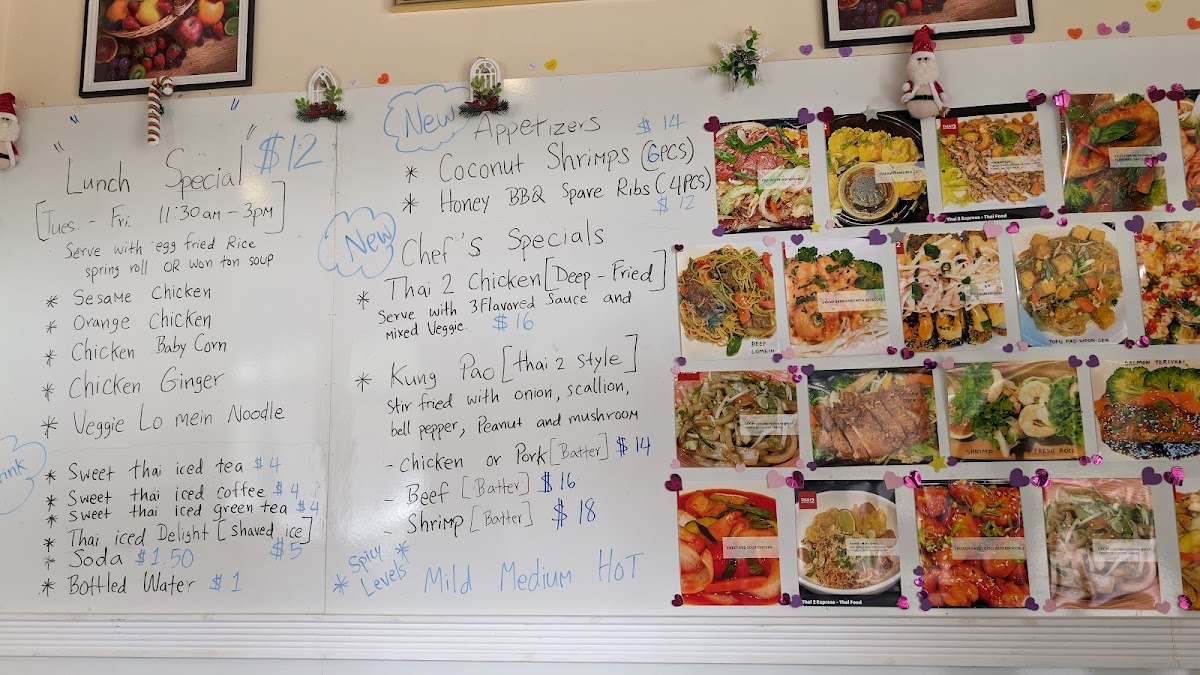 "Lunch Special" $12
[Tues. - Fri. 11:30am - 3pm]
Serve with egg fried Rice
spring roll OR won ton soup
* Sesame Chicken
* Orange Chicken
* Chicken Baby Corn
* Chicken Ginger
* Veggie Lo mein Noodle
* Sweet thai iced tea $4
* Sweet thai iced coffee $4
* Sweet thai iced green tea $4
* Thai iced Delight [shaved ice]
$5
* Soda $1.50
* Bottled Water $1
New Appetizers $14
* Coconut Shrimps (6pcs)
* Honey BBQ Spare Ribs (4PCS)
$12
New
Chef's Specials
* Thai 2 Chicken [Deep-Fried]
Serve with 3 Flavored Sauce and
mixed Veggie. $16
* Kung Pao [thai 2 style]
Stir fried with onion, scallion,
bell pepper, Peanut and mushroom
- Chicken or Pork [Batter] $14
- Beef [Batter] $16
- Shrimp [Batter] $18
* Spicy *
Levels
Mild Medium HOT
Thai 2 Express - Thai Food
BEEF
LOMEIN
TOFU PAD-WOON-SEN
SHRIMP FRESH ROLL
SALMON TERIYAKI
SWEET AND SOUR CHICKEN
Thai 2 Express - Thai Food